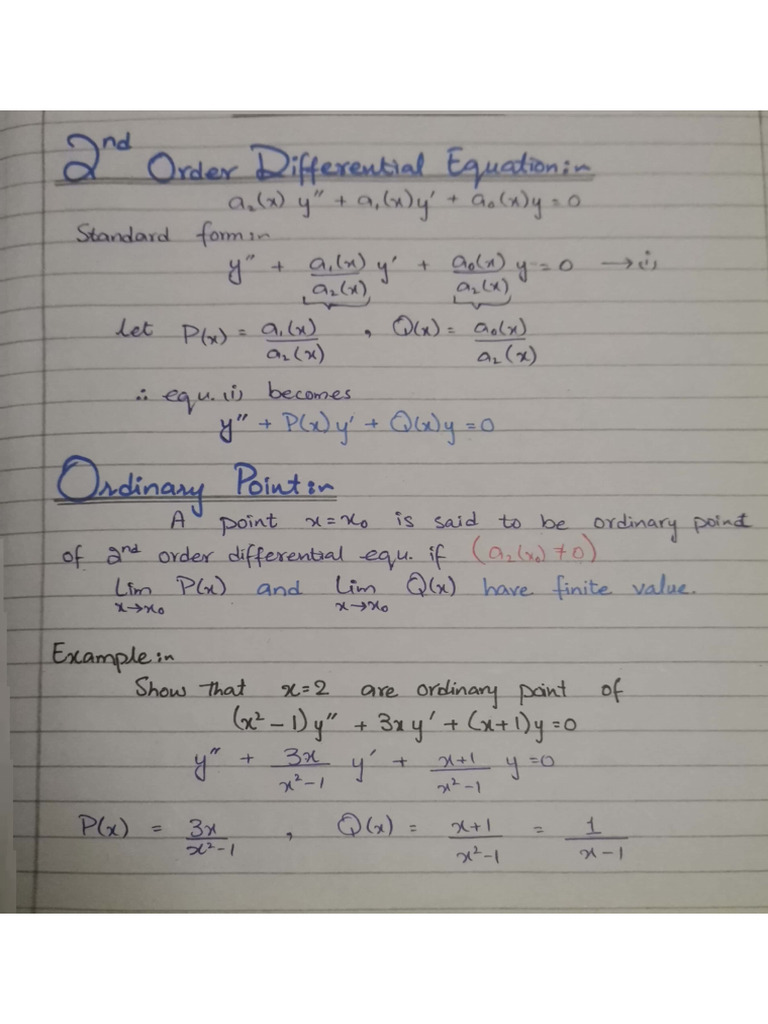 2nd Order Differential Equation:-
a₂(x) y″ + a₁(x)y′ + a₀(x)y = 0
Standard form:-
y″ + a₁(x)/a₂(x) y′ + a₀(x)/a₂(x) y = 0 → (i)
let P(x) = a₁(x)/a₂(x) , Q(x) = a₀(x)/a₂(x)
∴ equ. (i) becomes
y″ + P(x)y′ + Q(x)y = 0
Ordinary Point:-
A point x = x₀ is said to be ordinary point
of 2nd order differential equ. if (a₂(x₀) ≠ 0)
Lim x→x₀ P(x) and Lim x→x₀ Q(x) have finite value.
Example:-
Show that x=2 are ordinary point of
(x² – 1)y″ + 3xy′ + (x+1)y = 0
y″ + 3x/x²-1 y′ + x+1/x²-1 y = 0
P(x) = 3x/x²-1 , Q(x) = x+1/x²-1 = 1/x-1